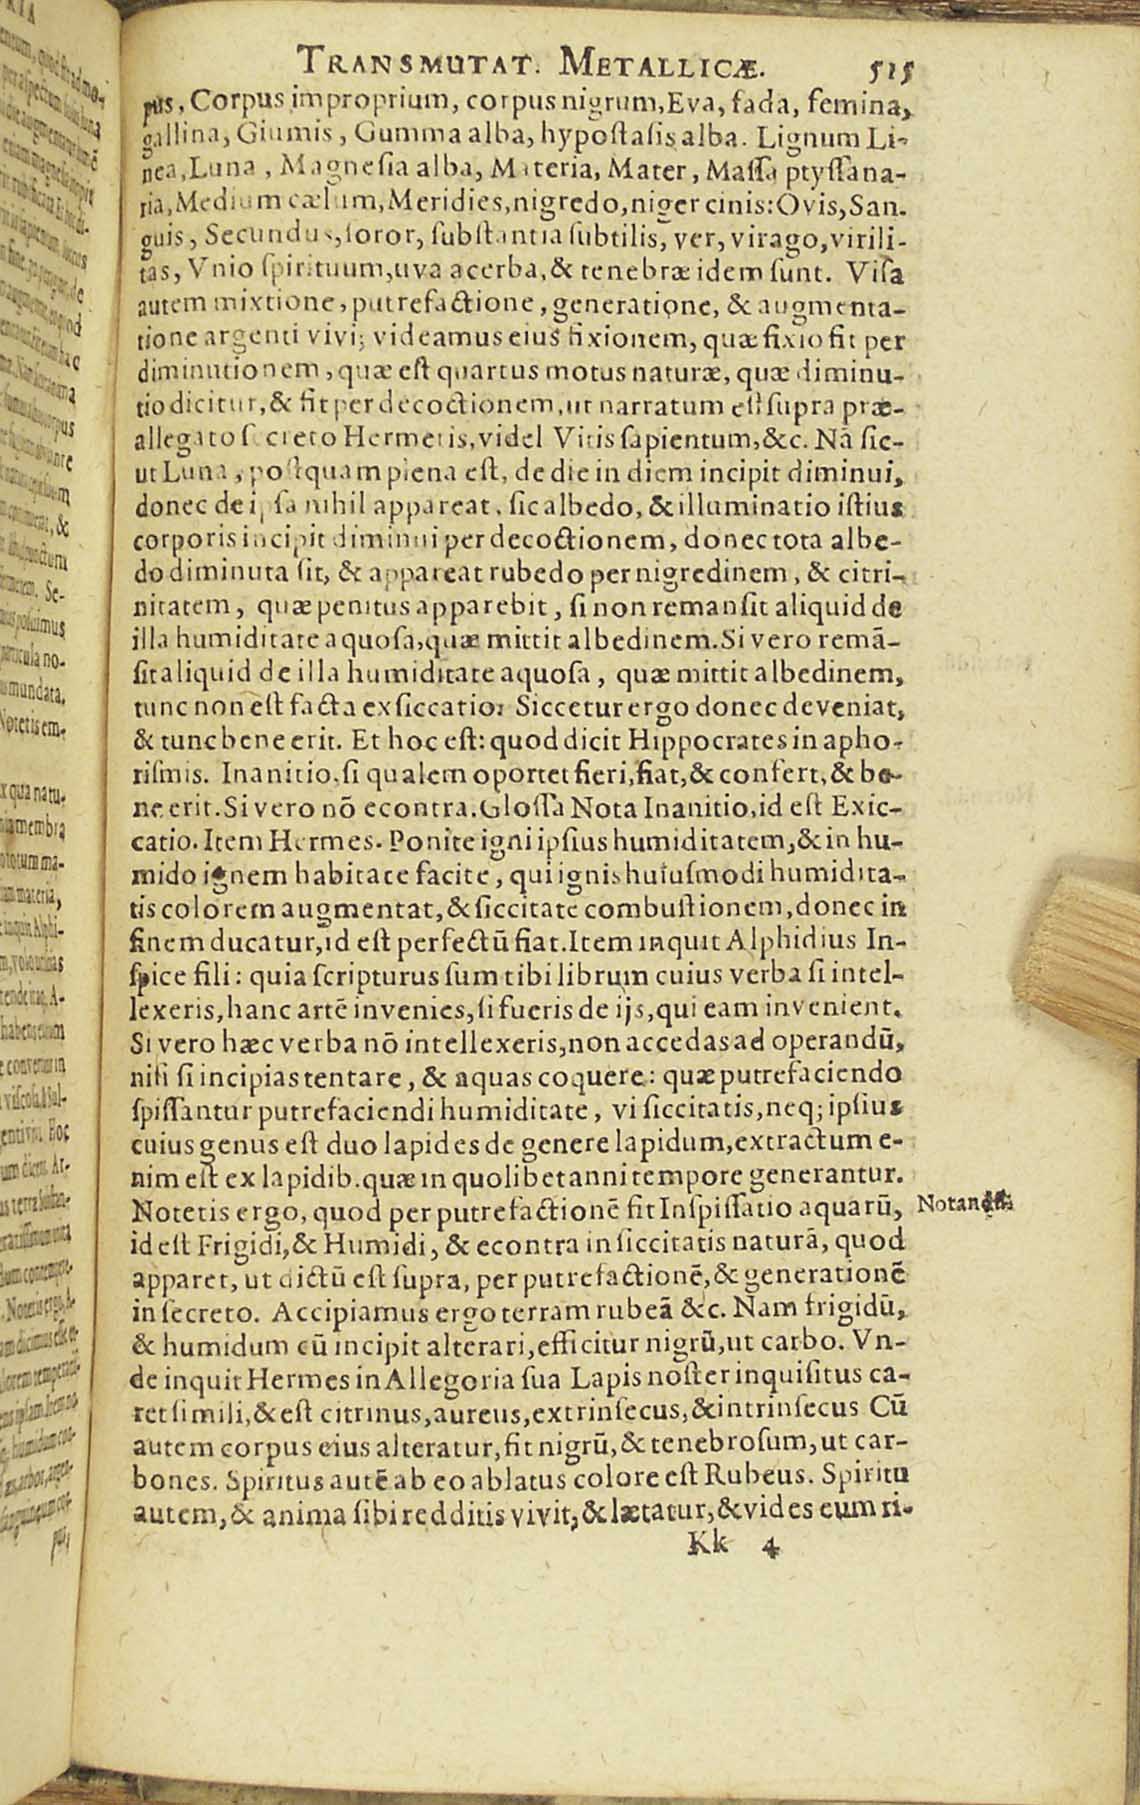 TRANSMUTAT. METALLICÆ. 515
pus, Corpus improprium, corpus nigrum, Eva, fada, femina,
gallina, Giumis, Gumma alba, hypostasis alba. Lignum Li-
nea, Luna, Magnesia alba, Materia, Mater, Massa ptyssana-
ria, Medium cælum, Meridies, nigredo, niger cinis: Ovis, San-
guis, Secundus, soror, substantia subtilis, ver, virago, virili-
tas, Vnio spirituum, uva acerba, & tenebræ idem sunt. Visa
autem mixtione, putrefactione, generatione, & augmenta-
tione argenti vivi; videamus eius fixionem, quæ fixio fit per
diminutionem, quæ est quartus motus naturæ, quæ diminu-
tio dicitur, & fit per decoctionem, ut narratum est supra præ-
allegato secreto Hermetis, videl Vitis sapientum, &c. Nã sic-
ut Luna, postquam plena est, de die in diem incipit diminui,
donec de ipsa nihil appareat, sic albedo, & illuminatio istius
corporis incipit diminui per decoctionem, donec tota albe-
do diminuta sit, & appareat rubedo per nigredinem, & citri-
nitatem, quæ penitus apparebit, si non remansit aliquid de
illa humiditate aquosa, quæ mittit albedinem. Si vero remã-
sit aliquid de illa humiditate aquosa, quæ mittit albedinem,
tunc non est facta exsiccatio: Siccetur ergo donec deveniat,
& tunc bene erit. Et hoc est: quod dicit Hippocrates in apho-
rismis. Inanitio, si qualem oportet fieri, fiat, & confert, & be-
ne erit. Si vero nõ econtra. Glossa Nota Inanitio, id est Exic-
catio. Item Hermes. Ponite igni ipsius humiditatem, & in hu-
mido ignem habitare facite, qui ignis huiusmodi humidita-
tis colorem augmentat, & siccitate combustionem, donec in
finem ducatur, id est perfectũ fiat. Item inquit Alphidius In-
spice fili: quia scripturus sum tibi librum cuius verba si intel-
lexeris, hanc artẽ invenies, si fueris de ijs, qui eam invenient.
Si vero hæc verba nõ intellexeris, non accedas ad operandũ,
nisi si incipias tentare, & aquas coquere: quæ putrefaciendo
spissantur putrefaciendi humiditate, vi siccitatis, neq; ipsius
cuius genus est duo lapides de genere lapidum, extractum e-
nim est ex lapidib. quæ in quolibet anni tempore generantur.
Notetis ergo, quod per putrefactionẽ fit Inspissatio aquarũ,
id est Frigidi, & Humidi, & econtra in siccitatis naturã, quod
apparet, ut dictũ est supra, per putrefactionẽ, & generationẽ
in secreto. Accipiamus ergo terram rubeã &c. Nam frigidũ,
& humidum cũ incipit alterari, efficitur nigrũ, ut carbo. Vn-
de inquit Hermes in Allegoria sua Lapis noster inquisitus ca-
ret simili, & est citrinus, aureus, extrinsecus, & intrinsecus Cũ
autem corpus eius alteratur, fit nigrũ, & tenebrosum, ut car-
bones. Spiritus autẽ ab eo ablatus colore est Rubeus. Spiritu
autem, & anima sibi redditis vivit, & lætatur, & vides eum ri-
Kk 4